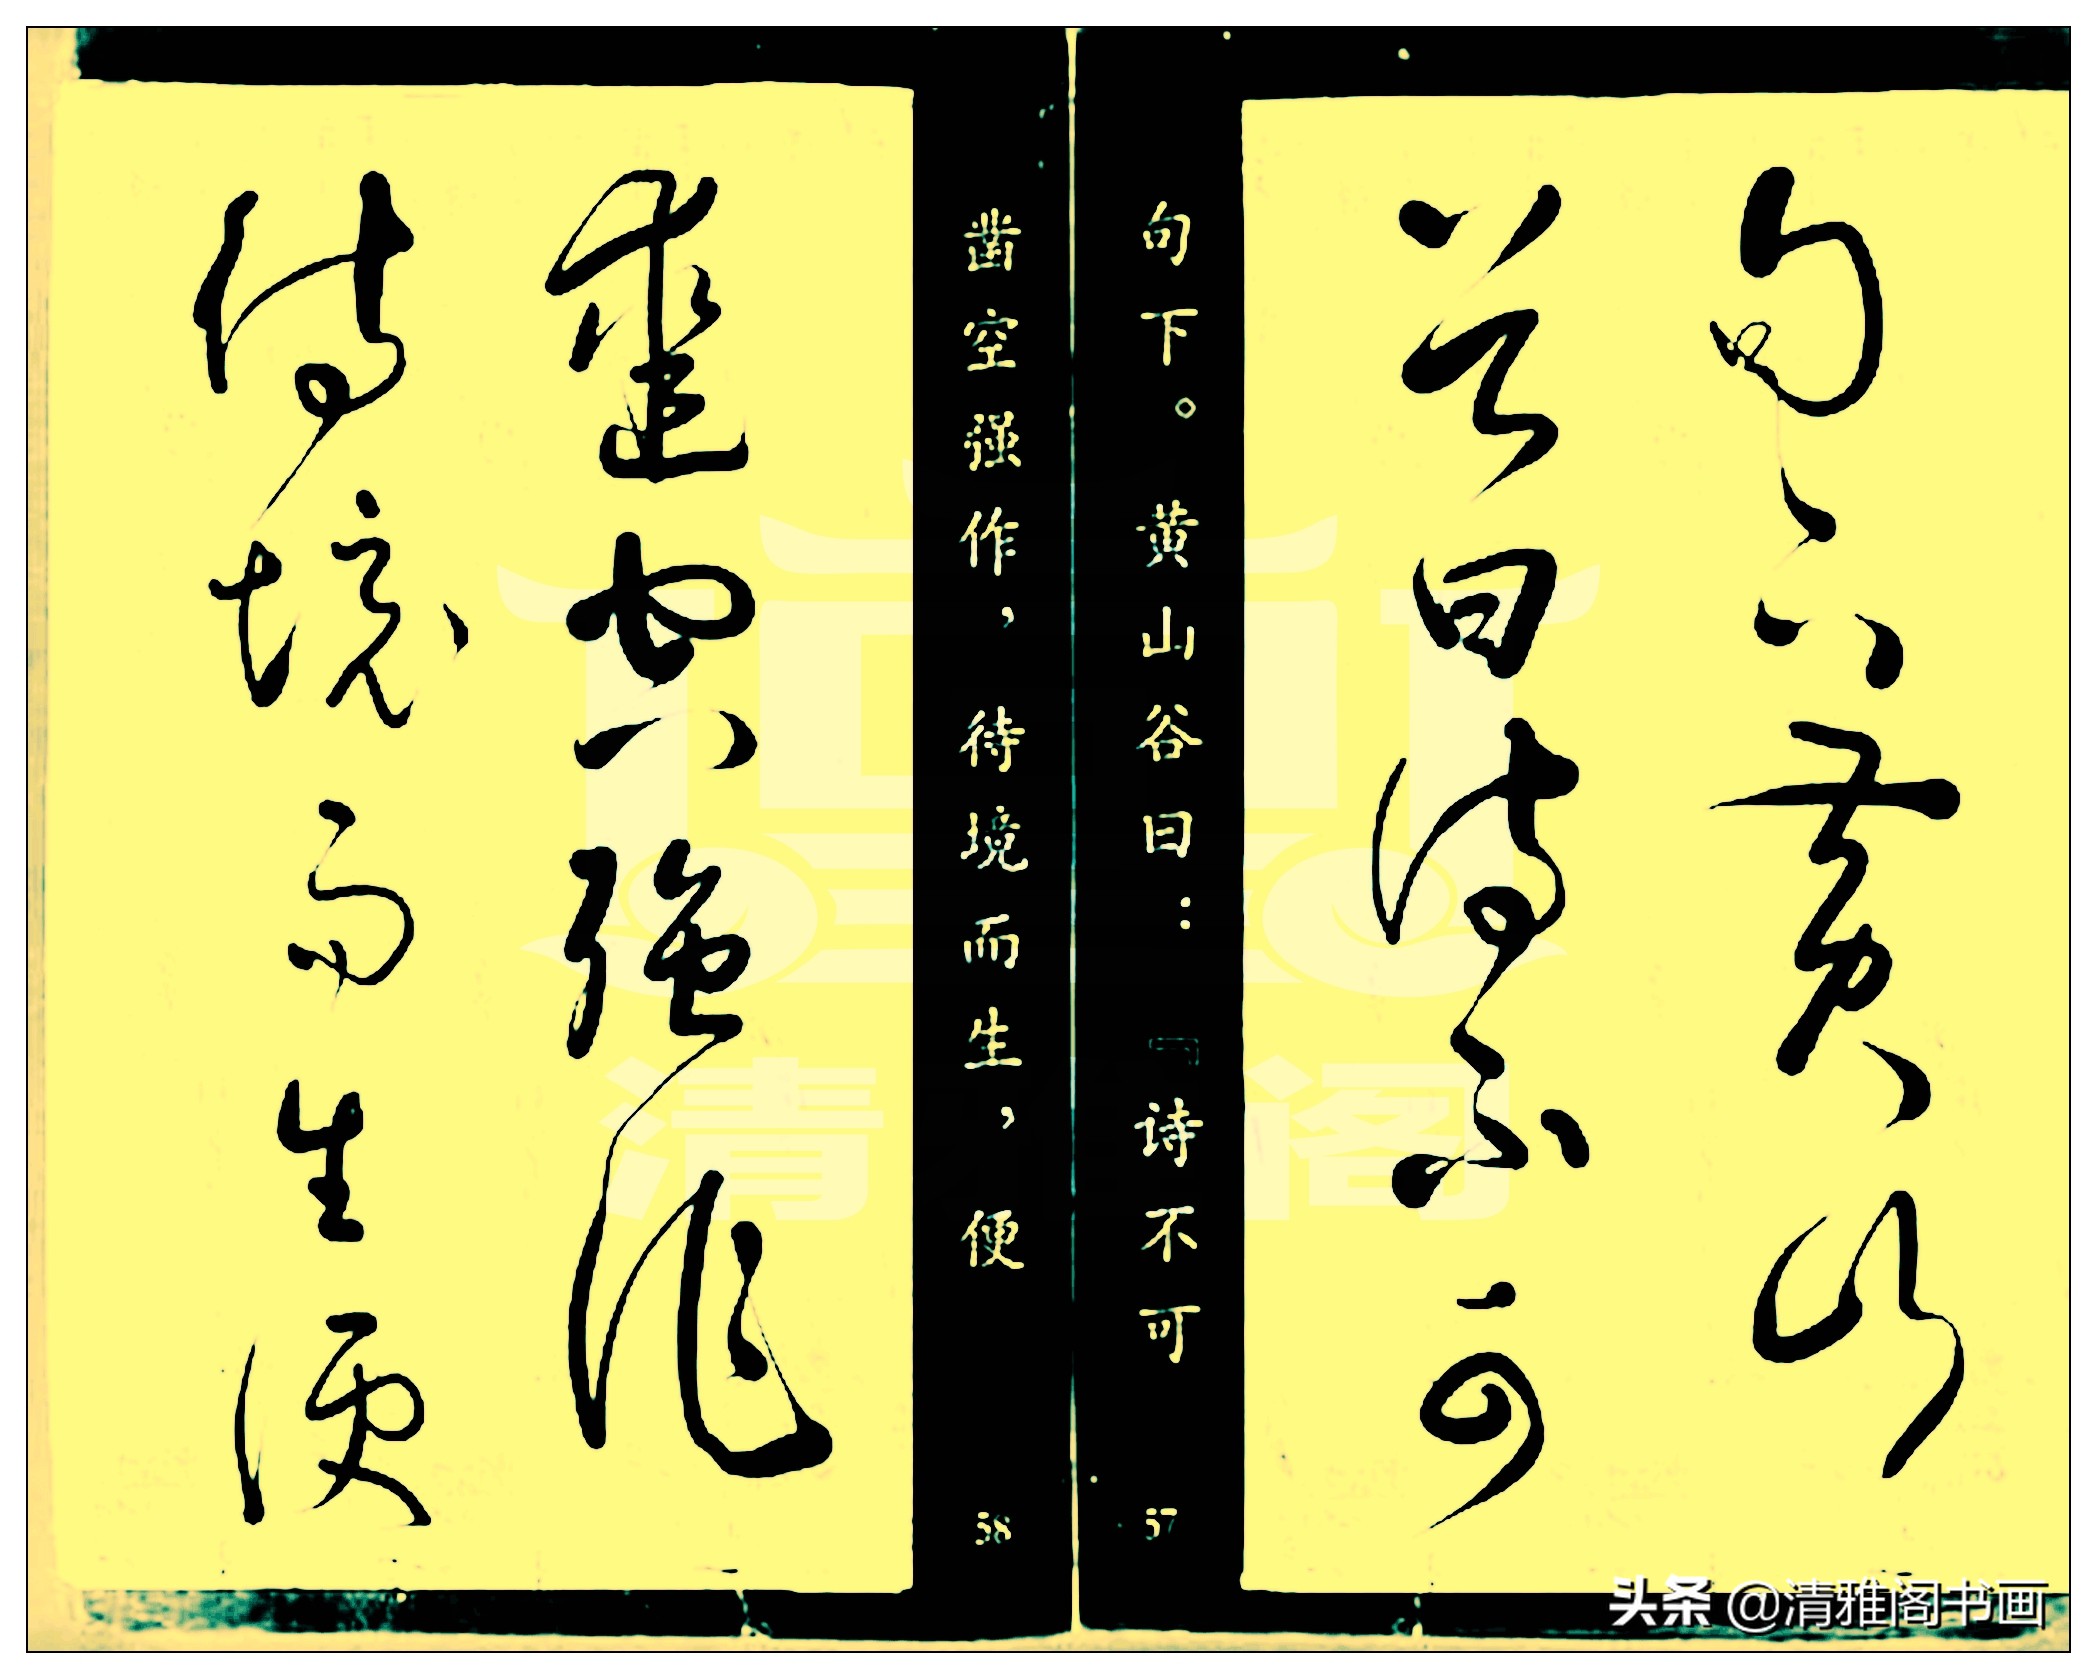 句下黄山
谷曰诗不可
句下。黄山谷曰：『诗不可
57
凿空强作
待境而生便
凿空强作，待境而生，便
58
清 阁
头条 @清雅阁书画